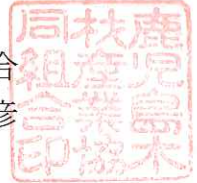 合
鹿児島木
材産業協
同組合印